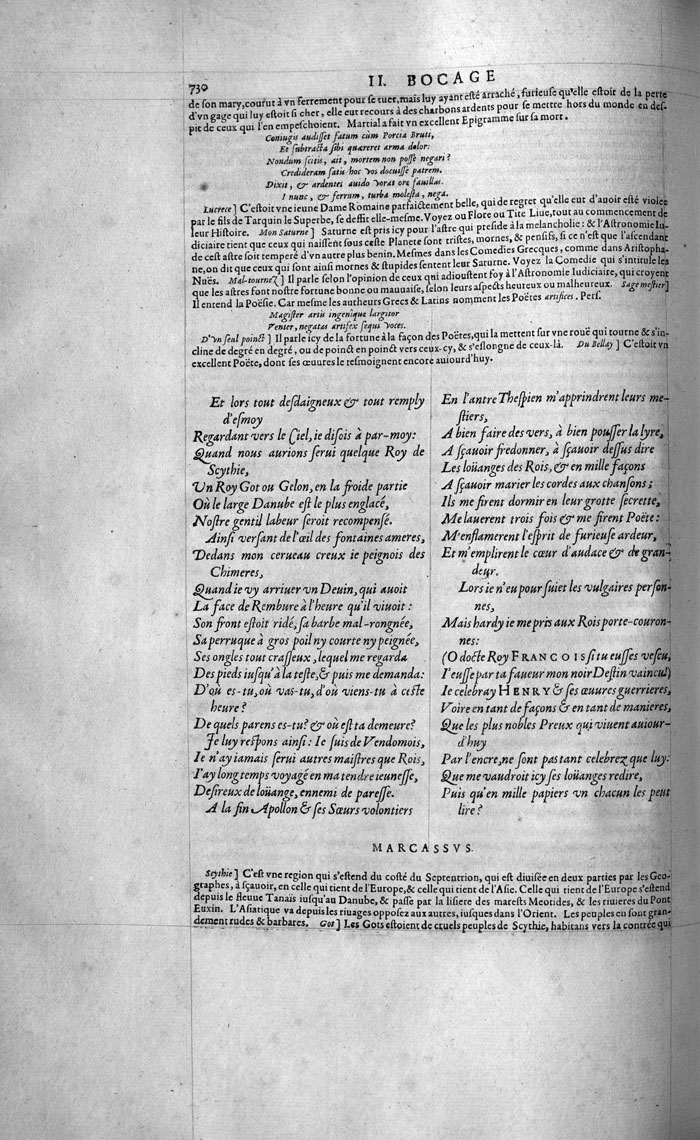 730
II. BOCAGE
de son mary, courut à vn ferrement pour se tuer, mais luy ayant esté arraché, furieuse qu'elle estoit de la perte
d'vn gage qui luy estoit si cher, elle eut recours à des charbons ardents pour se mettre hors du monde en des-
pit de ceux qui l'en empeschoient. Martial a fait vn excellent Epigramme sur sa mort.
Coniugis audisset fatum cùm Porcia Bruti,
Et subtracta sibi quæreret arma dolor:
Nondum scitis, ait, mortem non posse negari?
Credideram satis hoc vos docuisse patrem.
Dixit, & ardentes auido vorat ore fauillas.
I nunc, & ferrum, turba molesta, nega.
Lucrece] C'estoit vne ieune Dame Romaine parfaictement belle, qui de regret qu'elle eut d'auoir esté violee
par le fils de Tarquin le Superbe, se deffit elle-mesme. Voyez ou Flore ou Tite Liue, tout au commencement de
leur Histoire. Mon Saturne] Saturne est pris icy pour l'astre qui preside à la melancholie: & l'Astronomie Iu-
diciaire tient que ceux qui naissent sous ceste Planete sont tristes, mornes, & pensifs, si ce n'est que l'ascendant
de cest astre soit temperé d'vn autre plus benin. Mesmes dans les Comedies Grecques, comme dans Aristopha-
ne, on dit que ceux qui sont ainsi mornes & stupides sentent leur Saturne. Voyez la Comedie qui s'intitule les
Nuës. Mal-tournez] Il parle selon l'opinion de ceux qui adioustent foy à l'Astronomie Iudiciaire, qui croyent
que les astres font nostre fortune bonne ou mauuaise, selon leurs aspects heureux ou malheureux. Sage mestier]
Il entend la Poësie. Car mesme les autheurs Grecs & Latins nomment les Poëtes artifices. Pers.
Magister artis ingenique largitor
Venter, negatas artifex sequi voces.
D'vn seul poinct] Il parle icy de la fortune à la façon des Poëtes, qui la mettent sur vne rouë qui tourne & s'in-
cline de degré en degré, ou de poinct en poinct vers ceux-cy, & s'eslongne de ceux-là. Du Bellay] C'estoit vn
excellent Poëte, dont ses œuures le tesmoignent encore auiourd'huy.
Et lors tout desdaigneux & tout remply
d'esmoy
Regardant vers le Ciel, ie disois à par-moy:
Quand nous aurions serui quelque Roy de
Scythie,
Vn Roy Got ou Gelon, en la froide partie
Où le large Danube est le plus englacé,
Nostre gentil labeur seroit recompensé.
Ainsi versant de l'œil des fontaines ameres,
Dedans mon cerueau creux ie peignois des
Chimeres,
Quand ie vy arriuer vn Deuin, qui auoit
La face de Rembure à l'heure qu'il viuoit:
Son front estoit ridé, sa barbe mal-rongnée,
Sa perruque à gros poil ny courte ny peignée,
Ses ongles tout crasseux, lequel me regarda
Des pieds iusqu'à la teste, & puis me demanda:
D'où es-tu, où vas-tu, d'où viens-tu à ceste
heure?
De quels parens es-tu? & où est ta demeure?
Je luy respons ainsi: Ie suis de Vendomois,
Ie n'ay iamais serui autres maistres que Rois,
I'ay long temps voyagé en ma tendre ieunesse,
Desireux de loüange, ennemi de paresse.
A la fin Apollon & ses Sœurs volontiers
En l'antre Thespien m'apprindrent leurs me-
stiers,
A bien faire des vers, à bien pousser la lyre,
A sçauoir fredonner, à sçauoir dessus dire
Les loüanges des Rois, & en mille façons
A sçauoir marier les cordes aux chansons;
Ils me firent dormir en leur grotte secrette,
Me lauerent trois fois & me firent Poëte:
M'enflamerent l'esprit de furieuse ardeur,
Et m'emplirent le cœur d'audace & de gran-
deur.
Lors ie n'eu pour suiet les vulgaires person-
nes,
Mais hardy ie me pris aux Rois porte-couron-
nes:
(O docte Roy FRANCOIS si tu eusses vescu,
I'eusse par ta faueur mon noir Destin vaincu)
Ie celebray HENRY & ses œuures guerrieres,
Voire en tant de façons & en tant de manieres,
Que les plus nobles Preux qui viuent auiour-
d'huy
Par l'encre, ne sont pas tant celebrez que luy:
Que me vaudroit icy ses loüanges redire,
Puis qu'en mille papiers vn chacun les peut
lire?
MARCASSVS.
Scythie] C'est vne region qui s'estend du costé du Septentrion, qui est diuisée en deux parties par les Geo-
graphes, à sçauoir, en celle qui tient de l'Europe, & celle qui tient de l'Asie. Celle qui tient de l'Europe s'estend
depuis le fleuue Tanaïs iusqu'au Danube, & passe par la lisiere des marests Meotides, & les riuieres du Pont
Euxin. L'Asiatique va depuis les riuages opposez aux autres, iusques dans l'Orient. Les peuples en sont gran-
dement rudes & barbares. Got] Les Gots estoient de cruels peuples de Scythie, habitans vers la contrée qui